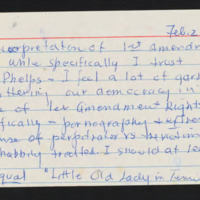 Feb. 2
terpretation of 1st Amendm
while specifically I trust
Phelps - I feel a lot of garb
thering our democracy in
e of 1st Amendment Right
fically - pornography &
use of perpetrators
habbily treated. I should at le
equal "Little Old Lady in Tennis